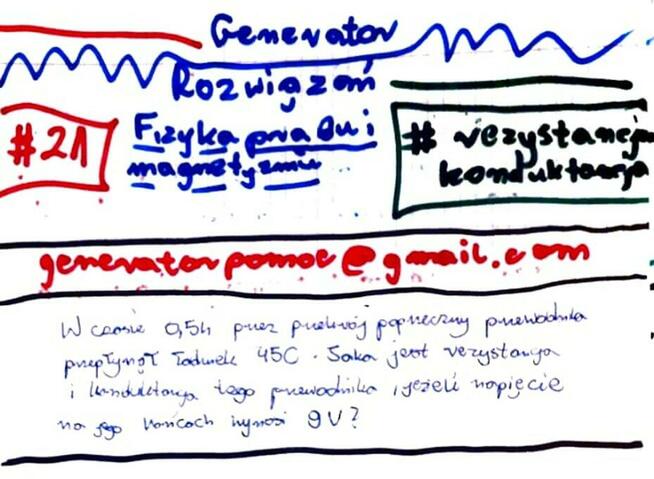 Generator
Rozwiązań
#21
Fizyka prądu i
magnetyzmu
# rezystancja
konduktancja
generatorpomoc@gmail.com
W czasie 0,5h przez przekrój poprzeczny przewodnika
przepłynął ładunek 45C. Jaka jest rezystancja
i konduktancja tego przewodnika, jeżeli napięcie
na jego końcach wynosi 9V?